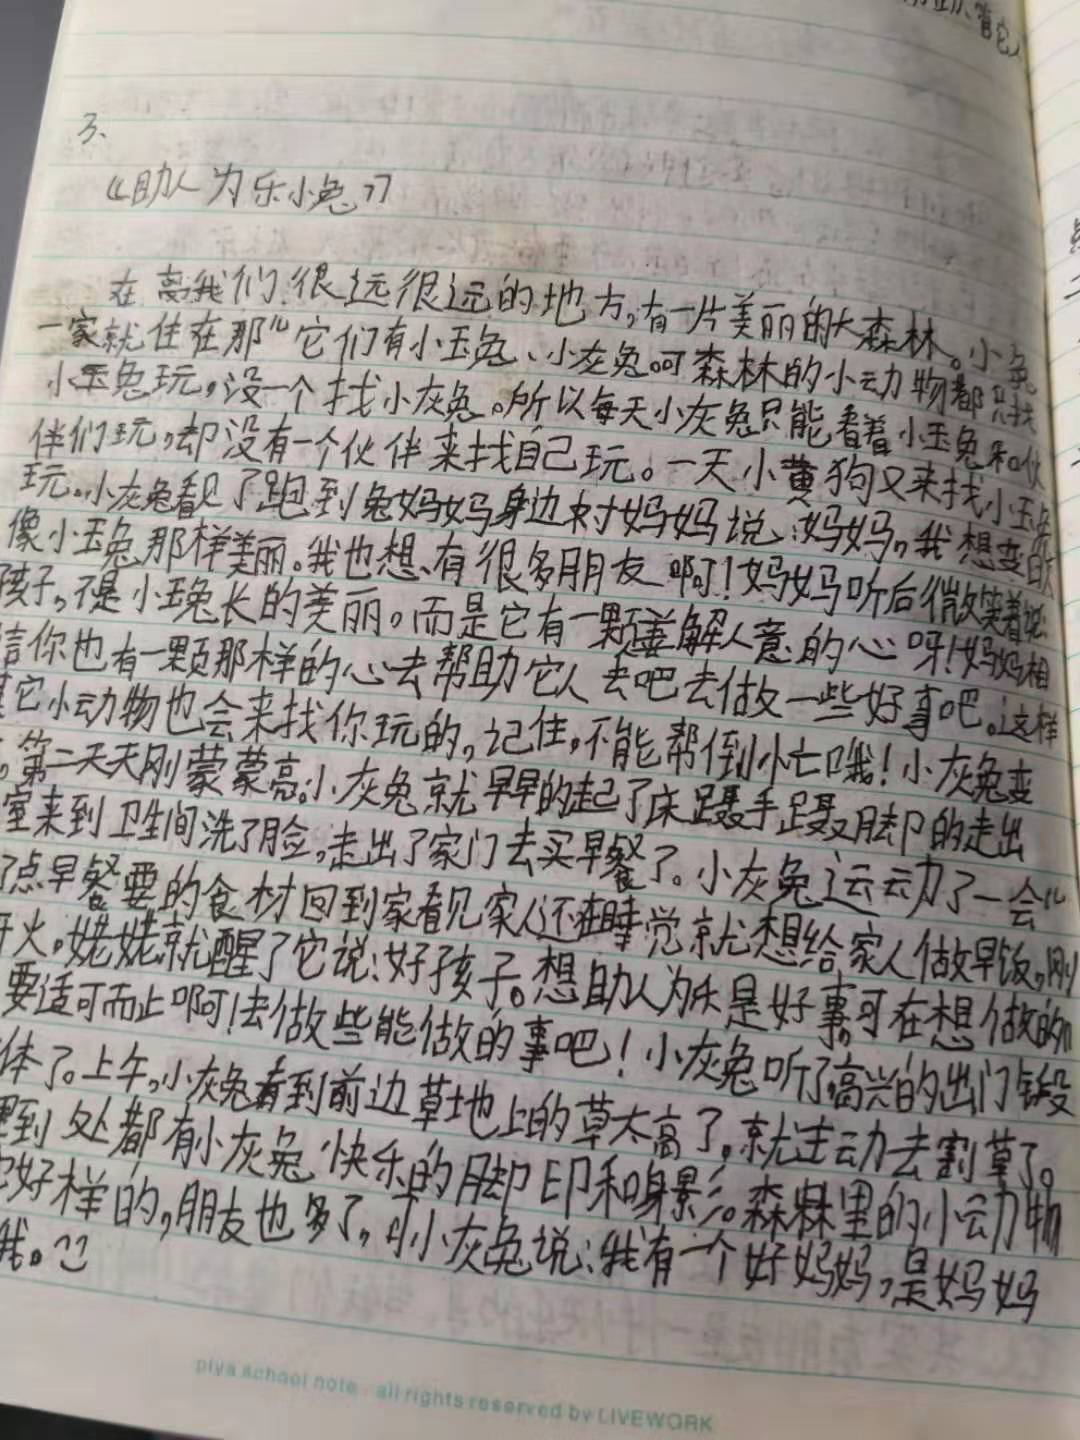 3、
《助人为乐小兔》
在离我们很远很远的地方,有一片美丽的大森林。小兔
一家就住在那儿它们有小玉兔、小灰兔。可森林的小动物都只找
小玉兔玩,没一个找小灰兔。所以每天小灰兔只能看着小玉兔和伙
伴们玩,却没有一个伙伴来找自己玩。一天小黄狗又来找小玉兔
玩。小灰兔看见了跑到兔妈妈身边对妈妈说:妈妈,我想变的
像小玉兔那样美丽。我也想有很多朋友啊!妈妈听后微笑着说:
孩子,不是小玉兔长的美丽。而是它有一颗善解人意的心呀!妈妈相
信你也有一颗那样的心去帮助它人去吧去做一些好事吧。这样
其它小动物也会来找你玩的,记住,不能帮倒小忙哦!小灰兔变
。第二天天刚蒙蒙亮。小灰兔就早早的起了床蹑手蹑脚的走出
室来到卫生间洗了脸,走出了家门去买早餐了。小灰兔运动了一会儿
了点早餐要的食材回到家看见家人还在睡觉就想给家人做早饭,刚
开火。姥姥就醒了它说:好孩子。想助人为乐是好事可在想做的
要适可而止啊!去做些能做的事吧!小灰兔听了高兴的出门锻
体了。上午,小灰兔看到前边草地上的草太高了,就主动去割草了。
里到处都有小灰兔快乐的脚印和身影。森林里的小动物
它好样的,朋友也多了,小灰兔说:我有一个好妈妈,是妈妈
我。
piya school note all rights reserved by LIVEWORK